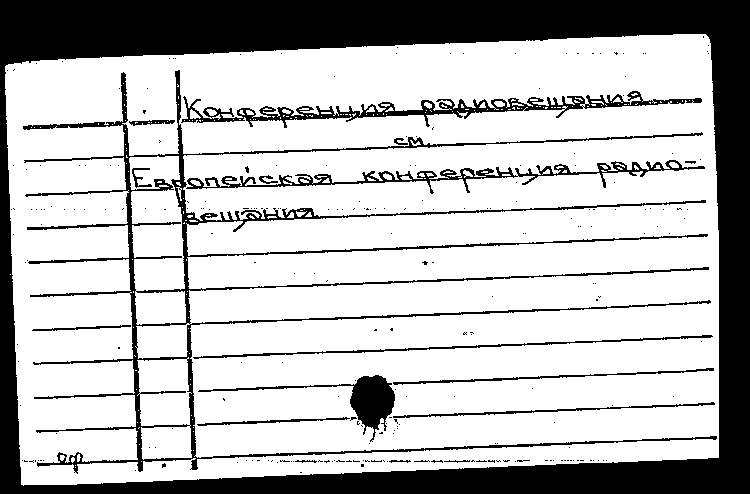 Конференция радиовещания
см.
Европейская конференция радио-
вещания